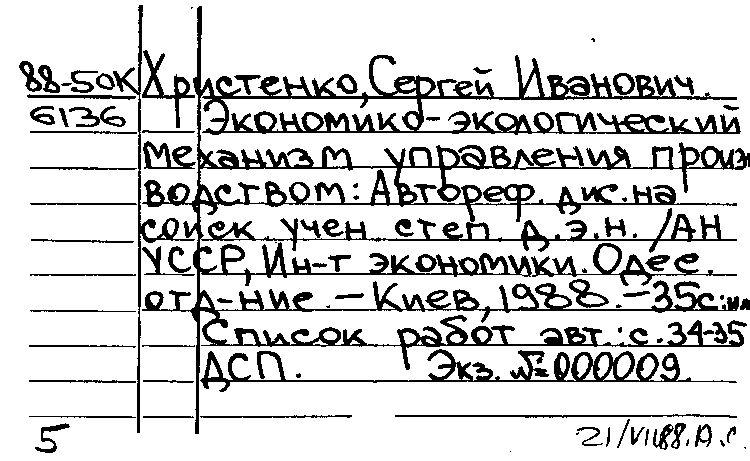 88-50К Христенко, Сергей Иванович.
6136 Экономико-экологический
механизм управления произ
водством: Автореф. дис. на
соиск. учен. степ. д.э.н. /АН
УССР, Ин-т экономики. Одес.
отд-ние. – Киев, 1988. – 35с.: ил
Список работ авт.: с. 34-35
ДСП. Экз. №000009.
5 21/VII88. А.С.